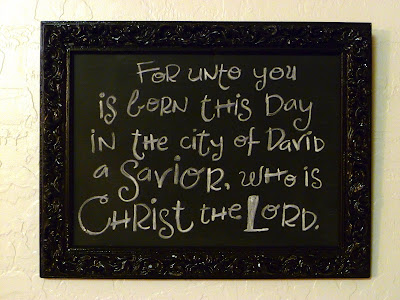 For unto you
is born this Day
in the city of David
a Savior, who is
Christ the Lord.